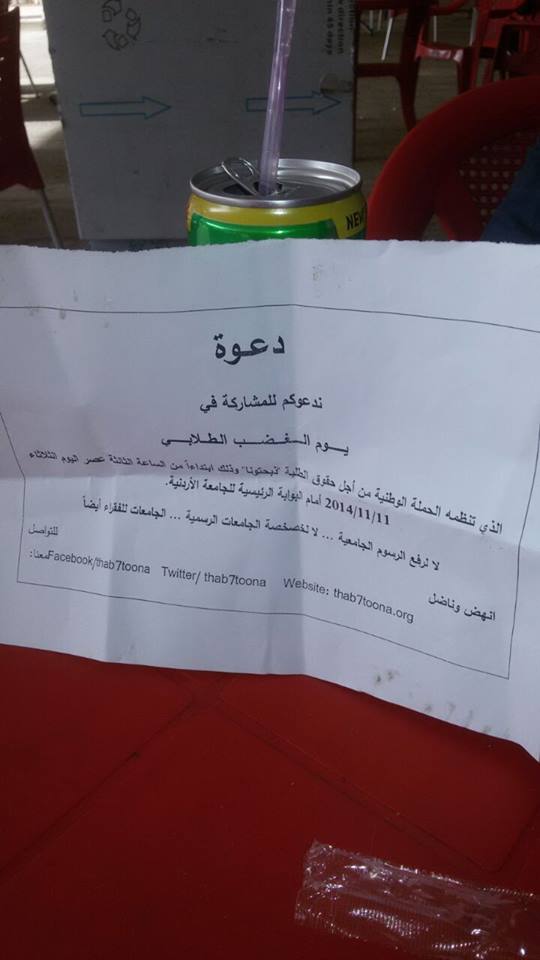 within 45 days
NEW
دعوة
ندعوكم للمشاركة في
يـوم الـغـضـب الطـلابـي
الذي تنظمه الحملة الوطنية من أجل حقوق الطلبة "ذبحتونا" وذلك ابتداءاً من الساعة الثالثة عصر اليوم الثلاثاء
2014/11/11 أمام البوابة الرئيسية للجامعة الأردنية.
لا لرفع الرسوم الجامعية ... لا لخصخصة الجامعات الرسمية ... الجامعات للفقراء أيضاً
انهض وناضل للتواصل
معنا: Facebook/thab7toona Twitter/ thab7toona Website: thab7toona.org